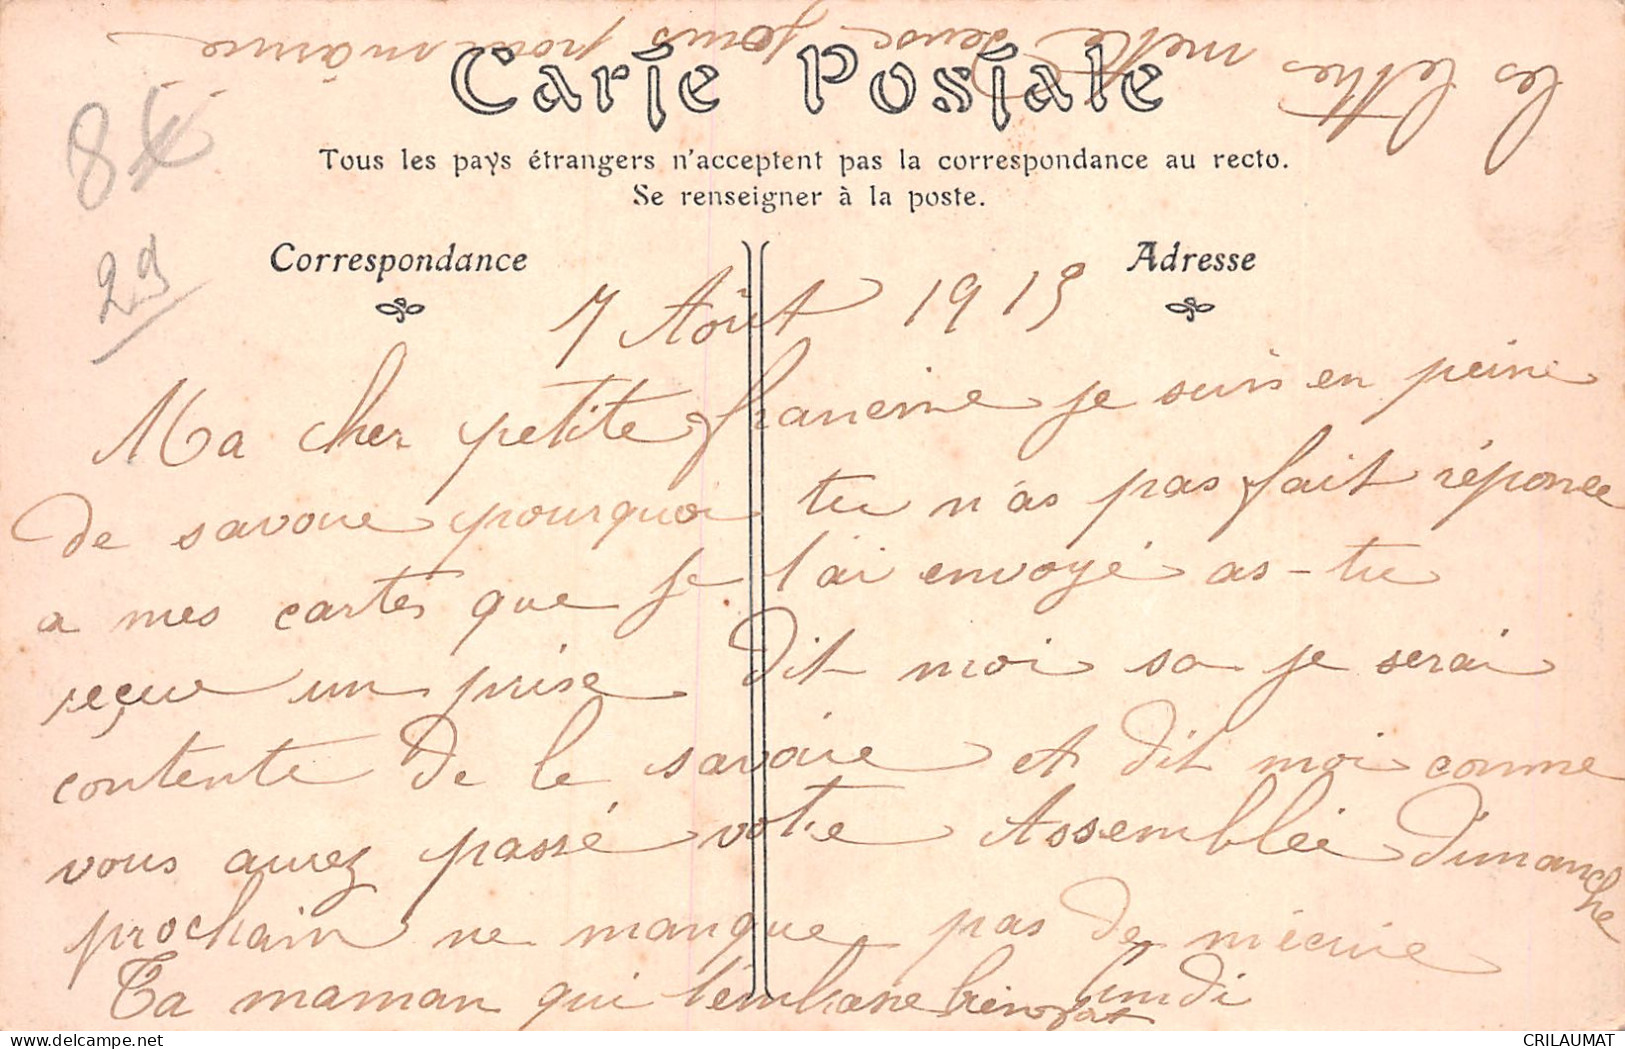 les lettres mette deux jours pour m'arrivé
Carte Postale
Tous les pays étrangers n'acceptent pas la correspondance au recto.
Se renseigner à la poste.
8€
29
Correspondance
Adresse
7 Août 1915
Ma cher petite francine je suis en peine
de savoire pourquoi tu n'as pas fait réponce
a mes cartes que je t'ai envoyé as-tu
reçue un prise dit moi sa je serai
contente de le savoire et dit moi comme
vous aurez passé votre Assemblée dimanche
prochain ne manque pas de m'écrire lundi
Ta maman qui t'embrase bien fort
CRILAUMAT